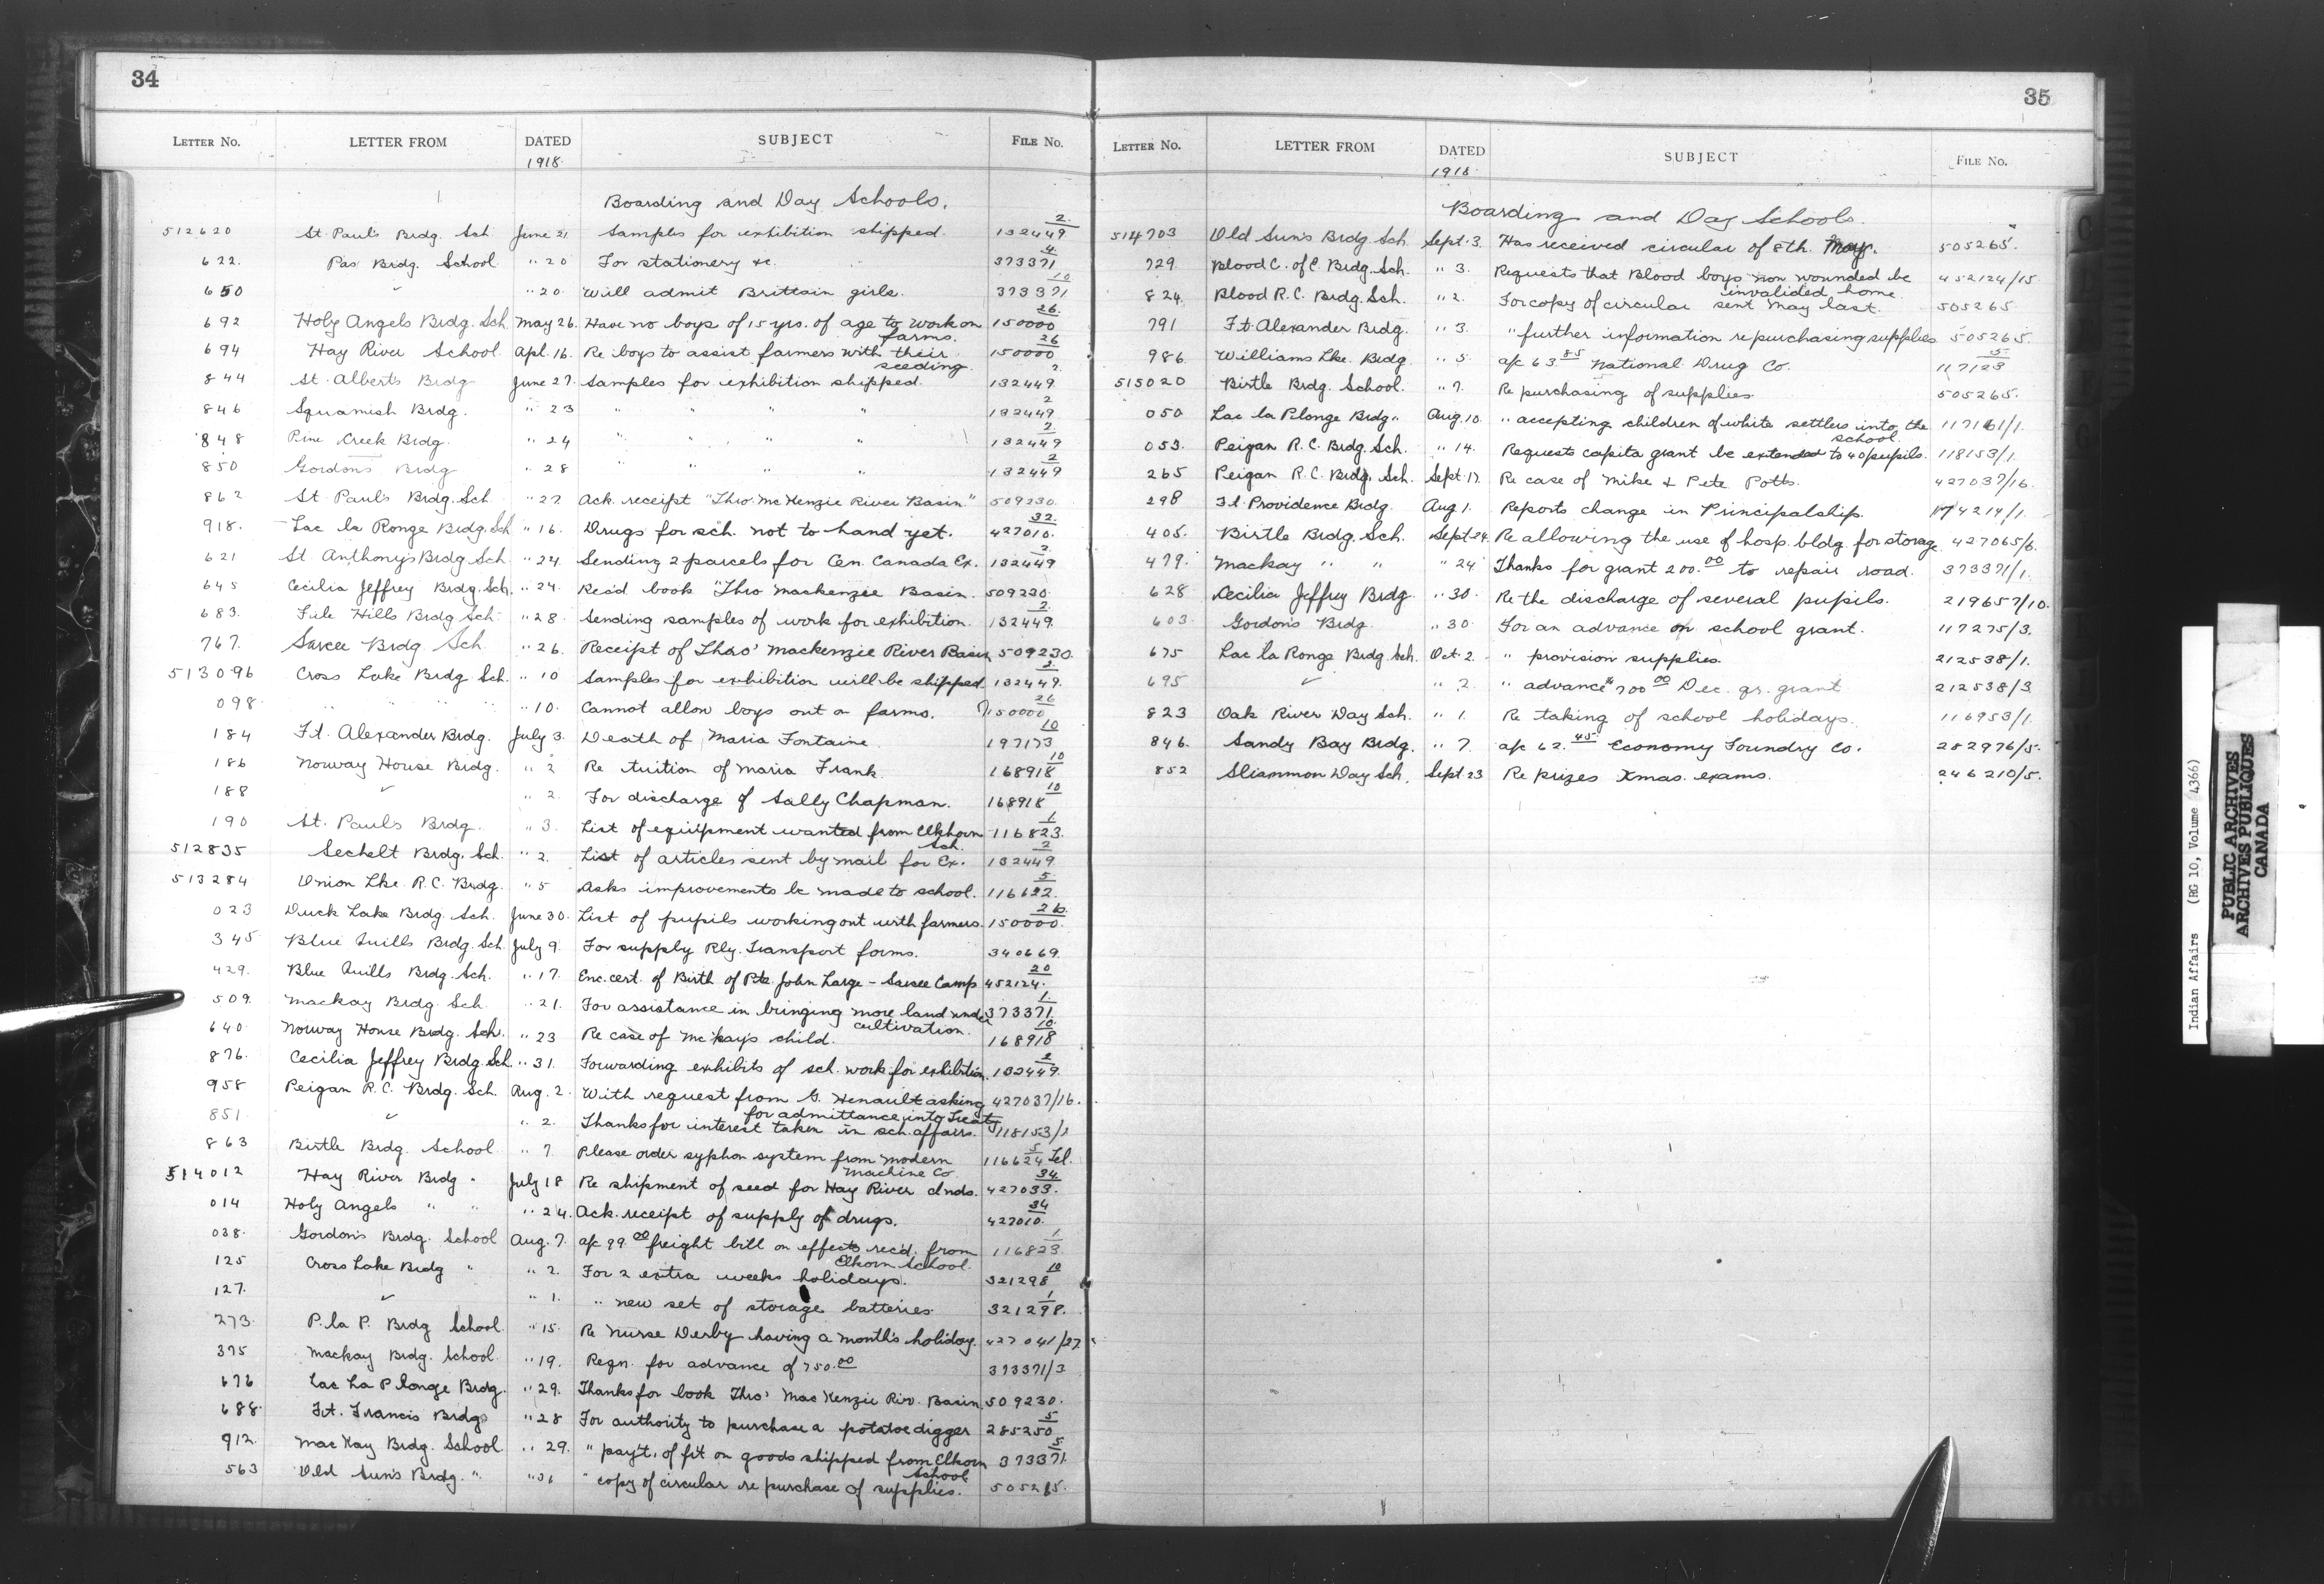 34
LETTER NO. LETTER FROM DATED SUBJECT FILE NO.
1918.
Boarding and Day Schools.
512620 St. Paul's Brdg. Sch. June 21. Samples for exhibition shipped. 132449/2.
622. Pas Brdg. School " 20 For stationery &c. 373371/4
650 ✓ " 20. Will admit Brittain girls. 373371/10
692 Holy Angels Brdg. Sch. May 26. Have no boys of 15 yrs. of age to work on 150000/26.
farms.
694 Hay River School Apl. 16. Re boys to assist farmers with their 150000/26
seeding
844 St. Alberts Brdg June 27. Samples for exhibition shipped. 132449/2.
846 Squamish Brdg. " 23 " " " " 132449/2
848 Pine Creek Brdg. " 24 " " " " 132449/2.
850 Gordon's Brdg " 28 " " " " 132449/2
862 St. Paul's Brdg. Sch " 27 Ack. receipt "Thro' McKenzie River Basin" 509230.
918. Lac la Ronge Brdg. Sch " 16. Drugs for sch. not to hand yet. 427010/32.
621 St. Anthony's Brdg. Sch " 24. Sending 2 parcels for Cen. Canada Ex. 132449/2.
645 Cecilia Jeffrey Brdg. Sch. " 24. Rec'd book "Thro Mackenzie Basin. 509230.
683. File Hills Brdg Sch. " 28. Sending samples of work for exhibition. 132449/2.
767. Sarcee Brdg. Sch. " 26. Receipt of Thro' Mackenzie River Basin 509230.
513096 Cross Lake Brdg Sch. " 10 Samples for exhibition will be shipped. 132449/2.
098 " " " " " 10. Cannot allow boys out on farms. 150000/26
184 Ft. Alexander Brdg. July 3. Death of Maria Fontaine 197173/10
186 Norway House Brdg. " 2 Re tuition of Maria Frank. 168918/10
188 ✓ " 2. For discharge of Sally Chapman. 168918/10
190 St. Paul's Brdg. " 3. List of equipment wanted from Elkhorn 116823/1.
Sch.
512835 Sechelt Brdg. Sch. " 2. List of articles sent by mail for Ex. 132449/2
513284 Onion Lke. R.C. Brdg. " 5 Asks improvements be made to school. 116622/5.
023 Duck Lake Brdg. Sch. June 30. List of pupils working out with farmers. 150000/26.
345 Blue Quills Brdg. Sch July 9. For supply Rly. Transport forms. 340669.
429. Blue Quills Brdg. Sch. " 17. Enc. cert. of Birth of Pte. John Large - Sarcee Camp 452124/20.
509. Mackay Brdg. Sch. " 21. For assistance in bringing more land under 373371/1.
cultivation.
640 Norway House Brdg. Sch. " 23 Re case of McKay's child. 168918/10.
876. Cecilia Jeffrey Brdg. Sch. " 31. Forwarding exhibits of sch. work for exhibition. 132449/2.
958 Peigan R.C. Brdg. Sch. Aug. 2. With request from G. Henault asking 427037/16.
for admittance into Treaty
851. ✓ " 2. Thanks for interest taken in sch. affairs. 118153/1
863 Birtle Brdg. School " 7 Please order syphon system from Modern 116624/5 Tel.
Machine Co
514012 Hay River Brdg " July 18 Re shipment of seed for Hay River Inds. 427033/34.
014 Holy Angels " " " 24. Ack. receipt of supply of drugs. 427010/34.
038. Gordon's Brdg. School Aug. 7. a/c 99.00 freight bill on effects rec'd. from 116823/1.
Elkorn School.
125 Cross Lake Brdg " " 2. For 2 extra weeks holidays. 321298/10
127. ✓ " 1. " new set of storage batteries. 321298/1.
273. P. la P. Brdg School. " 15. Re Nurse Derby having a month's holiday. 427041/27
375 Mackay Brdg. School. " 19. Reqn. for advance of 750.00 373371/3
676 Lac La Plonge Brdg. " 29. Thanks for book Thro' MacKenzie Riv. Basin. 509230.
688. Ft. Francis Brdg " 28 For authority to purchase a potatoe digger 285250/5
912. MacKay Brdg. School " 29. " pay't. of frt on goods shipped from Elkorn 373371/5.
School.
563 Old Sun's Brdg. " " 31 " copy of circular re purchase of supplies. 505265.
35
LETTER NO. LETTER FROM DATED SUBJECT FILE NO.
1918.
Boarding and Day Schools.
514703 Old Sun's Brdg Sch. Sept. 3. Has received circular of 8th. May. 505265.
729. Blood C. of E. Brdg. Sch. " 3. Requests that Blood boys now wounded be 452124/15
invalided home.
824. Blood R.C. Brdg. Sch. " 2. For copy of circular sent May last. 505265.
791 Ft. Alexander Brdg. " 3. " further information re purchasing supplies 505265.
986. Williams Lke. Brdg. " 5. a/c 63.85 National Drug Co. 117123/5
515020 Birtle Brdg. School. " 7. Re purchasing of supplies. 505265.
050 Lac la Plonge Brdg. Aug. 10. " accepting children of white settlers into the 117161/1.
school.
053. Peigan R.C. Brdg. Sch. " 14. Requests capita grant be extended to 40 pupils. 118153/1.
265 Peigan R.C. Brdg. Sch. Sept. 17. Re case of Mike & Pete Potts. 427037/16.
298 Ft. Providence Brdg. Aug 1. Reports change in Principalship. 174214/1.
405. Birtle Brdg. Sch. Sept 24. Re allowing the use of hosp. bldg. for storage 427065/6.
479. Mackay " " " 24 Thanks for grant 200.00 to repair road. 373371/1.
628 Cecilia Jeffrey Brdg. " 30. Re the discharge of several pupils. 219657/10.
603. Gordon's Brdg. " 30. For an advance on school grant. 117275/3.
675 Lac la Ronge Brdg. Sch. Oct. 2. " provision supplies. 212538/1.
695 ✓ " 2. " advance 700.00 Dec. qr. grant 212538/3
823 Oak River Day Sch. " 1. Re taking of school holidays. 116953/1.
846. Sandy Bay Brdg. " 7. a/c 62.45 Economy Foundry Co. 282976/5.
852 Sliammon Day Sch. Sept 23 Re prizes Xmas. exams. 246210/5.
Indian Affairs (RG 10, Volume 4366)
PUBLIC ARCHIVES
ARCHIVES PUBLIQUES
CANADA